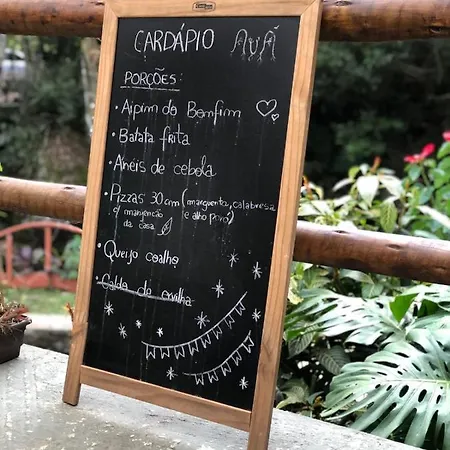 CARDÁPIO AVÃ
PORÇÕES:
• Aipim do Bonfim
• Batata frita
• Anéis de cebola
• Pizzas 30cm (marguerita, calabresa
e manjericão e alho poró)
da casa
• Queijo coalho
• Caldo de ervilha